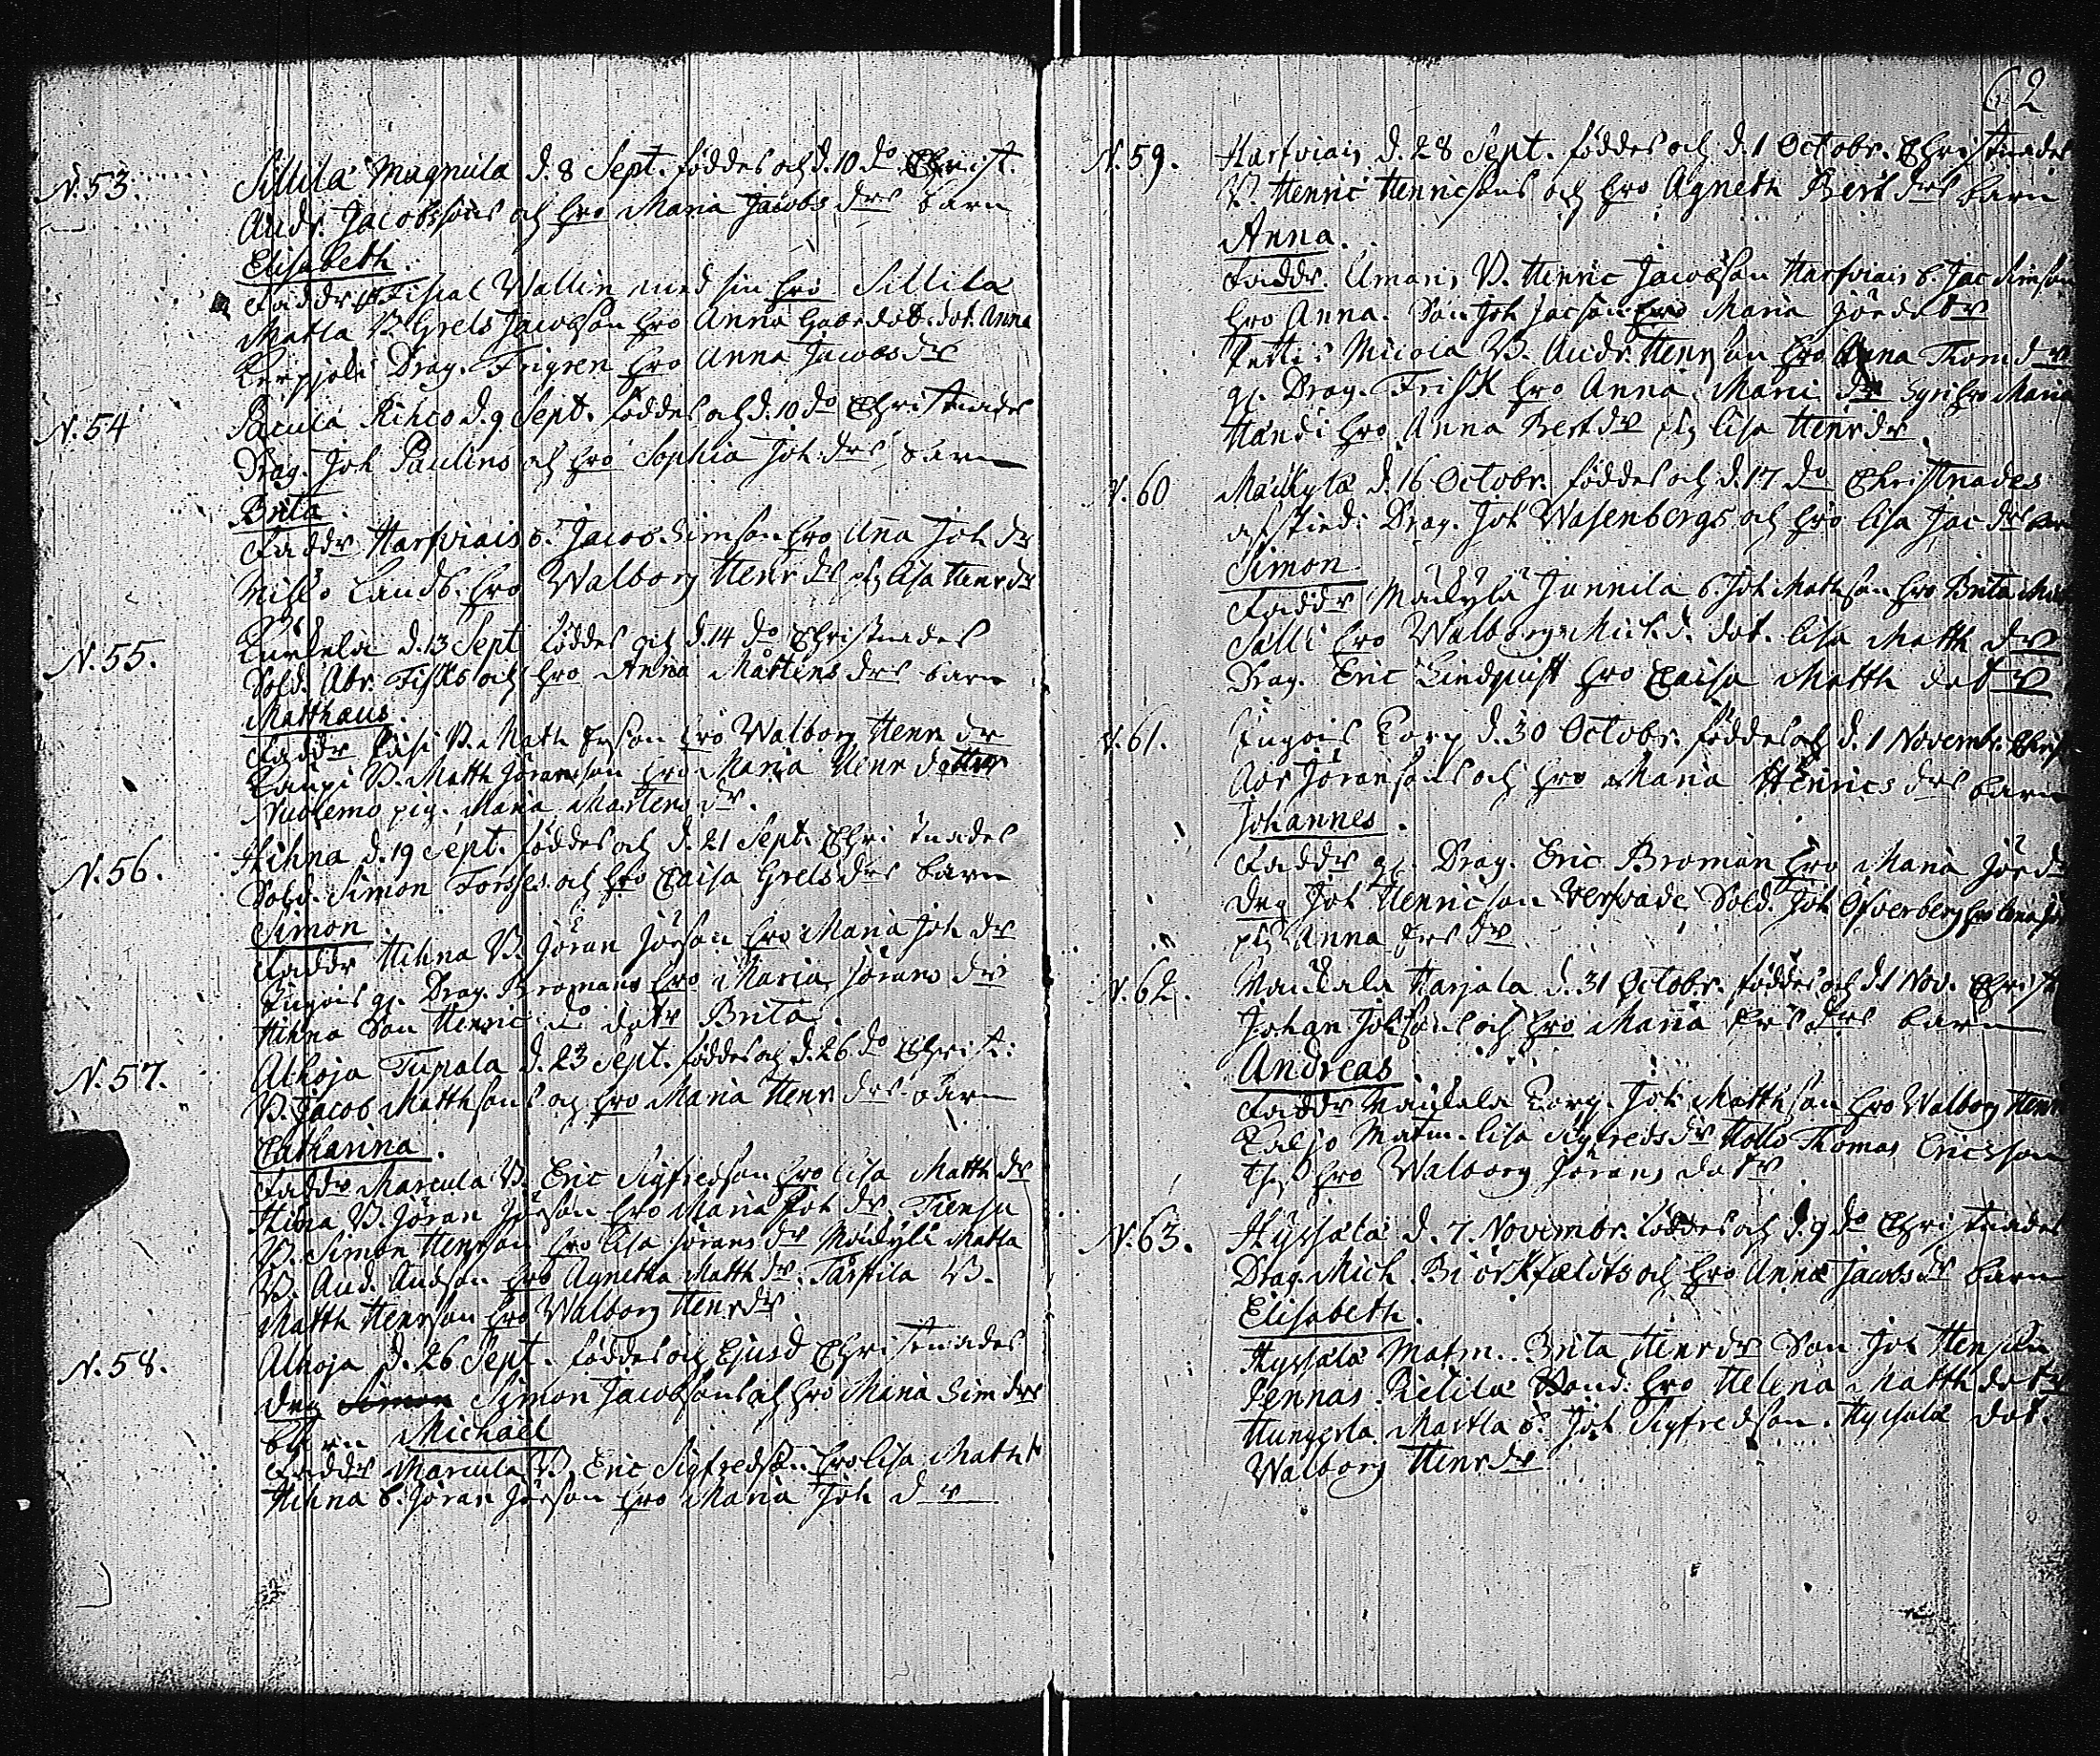 N. 53. Sillilä Magnula d. 8 Sept. föddes och d. 10 do Christ.
Andr. Jacobssons och hro Maria Jacobs drs barn
Elisabeth.
Faddr Fiscal Wallin med sin hro Sillilä
Matla B. Grels Jacobson hro Anna dot. Anna
Drag. Frigren hro Anna Jacobs dr
N. 54 Pacula Rihco d. 9 Sept. föddes och d. 10 do Christnades
Drag. Joh Paulins och hro Sophia Joh. drs barn
Brita.
Faddr Harfviais b. Jacob Simson hro Anna Joh dr
Lands. hro Walborg Henr dr pig lisa Henr dr
N. 55. d. 13 Sept föddes och d. 14 do Christnades
Sold. Abr. Fisks och hro Anna Mårtens drs barn
Matthæus.
Faddr B. Math hro Walborg Henr dr
Caupi B. Matth Jöransson hro Maria Henr dotter
Nuolemo pig. Maria Martens dr.
N. 56. Hihna d. 19 Sept. föddes och d. 21 Sept. Christnades
Sold. Simon och hro Caisa Grels drs barn
Simon
Faddr Hihna B. Jöran Jörson hro Maria Joh dr
gl. Drag. Bromans hro Maria Jörans dr
Hihna Son Henric do dotr Brita.
N. 57. Alhoja Tupala d. 23 Sept. föddes och d. 26 do Christ:
B. Jacob Matthsons och hro Maria Henr drs barn
Catharina.
Faddr Marcula B. Eric Sigfredson hro lisa Matth dr
Hina B. Jöran Jörson hro Maria Joh dr.
B. Simon Henrson hro lisa Jörans dr Mäukylä Matla
B. And. Andson hro Agnetha Matth dr. B.
Matth Henrson hro Walborg Henr dr
N. 58. Alhoja d. 26 Sept. föddes och Ejusd Christnades
drg Simon Simon Jacobsons och hro Maria Sim drs
barn Michaël
Faddr Marcula B. Eric Sigfredson hro lisa Matth
Hihna b. Jöran Jörson hro Maria Joh dr
62
N. 59. Harfviais d. 28 Sept. föddes och d. 1 Octobr. Christnades
B. Henric Henricsons och hro Agneth Bert drs barn
Anna.
Faddr. B. Henric Jacobson Harfviais b. Jac Simson
hro Anna. Son Joh Jacson hro Maria Jör dotr
B. Andr. Henrson hro Anna Thom dr
gl. Drag. Frisk hro Anna hro Maria
Handi hro Anna Bert dr pig lisa Henr dr
N. 60 Mäukylä d. 16 Octobr. föddes och d. 17 do Christnades
afskied: Drag. Joh Wasenbergs och hro lisa Jac drs
Simon
Faddr Mäukylä Junnila b. Joh Mathson hro Brita
Sälli hro Walborg Mich. d. dot. lisa Matth dr
Drag. Eric Lindquist hro Caisa Matth dotr
N. 61. Torp d. 30 Octobr. föddes och d. 1 Novembr. Christ
Abr Jöransons och hro Maria Henrics drs barn
Johannes.
Faddr gl. Drag. Eric Broman hro Maria Jör dr
drg Joh Henricson Sold. Joh Öfverberg hro
pig Anna
N. 62. Harjala d. 31 Octobr. föddes och d. 1 Nov. Christ
Johan Johsons och hro Maria drs barn
Andreas.
Faddr Torp. Joh Matthson hro Walborg Henr
Matm. lisa Sigfreds dr Thomas Ericsson
hro Walborg Jörans dotr
N. 63. Hyssälä d. 7. Novembr. föddes och d. 9 do Christnades
Drag. Mich. Biörkfeldts och hro Anna Jacobs dr barn
Elisabeth.
Hyssälä Matm. Brita Henr dr Son Joh Henson
Pennas. hro Helena Matth dotr
Martla b. Joh Sigfredson. Hyssälä dot.
Walborg Henr dr